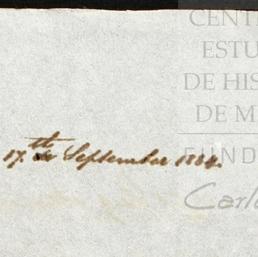 CENT
ESTU
DE HIS
DE M
FUND
Carl
17.th September 1864.